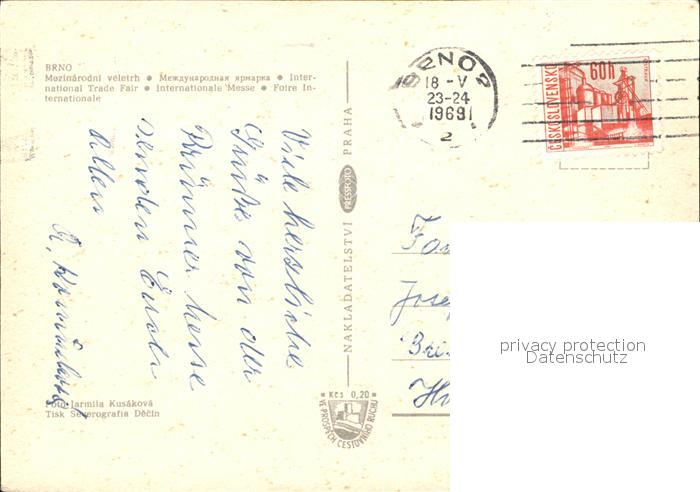 BRNO
Mezinárodní veletrh ● Международная ярмарка ● Inter-
national Trade Fair ● Internationale Messe ● Foire In-
ternationale
Viele herzliche
Grüße von der
Brünner Messe
senden Euch
allen
Foto Jarmila Kusáková
Tisk Severografia Děčín
NAKLADATELSTVÍ PRESSFOTO PRAHA
Kčs 0,20
VE PROSPĚCH CESTOVNÍHO RUCHU
BRNO 2
18 -V
23-24
1969
2
ČESKOSLOVENSKO
60h
privacy protection
Datenschutz